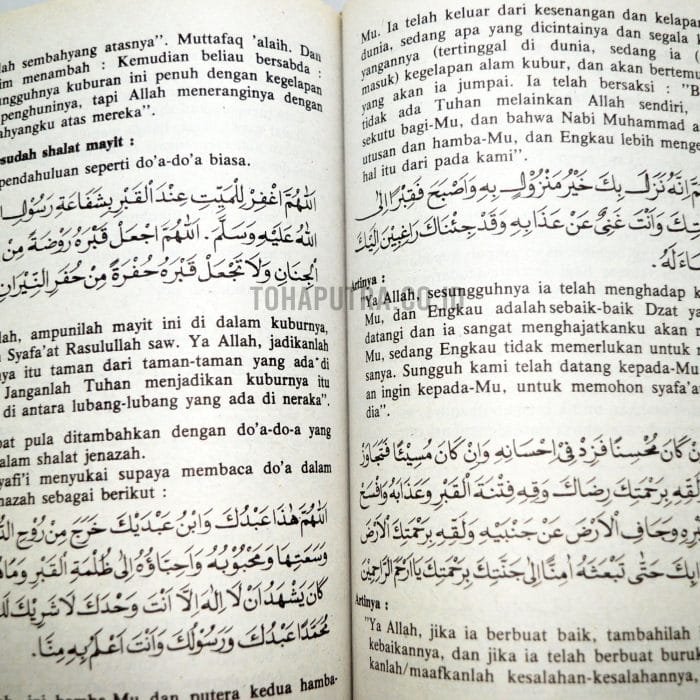 lah sembahyang atasnya". Muttafaq 'alaih. Dan
im menambah : Kemudian beliau bersabda :
ungguhnya kuburan ini penuh dengan kegelapan
penghuninya, tapi Allah meneranginya dengan
ahyangku atas mereka".
sudah shalat mayit :
pendahuluan seperti do'a-do'a biasa.
اَللّٰهُمَّ اغْفِرْ لِلْمَيِّتِ عِنْدَ الْقَبْرِ بِشَفَاعَةِ رَسُوْلِ
اللهُ عَلَيْهِ وَسَلَّمَ. اَللّٰهُمَّ اجْعَلْ قَبْرَهُ رَوْضَةً مِنْ
الْجِنَانِ وَلَا تَجْعَلْ قَبْرَهُ حُفْرَةً مِنْ حُفَرِ النِّيْرَانِ
lah, ampunilah mayit ini di dalam kuburnya,
Syafa'at Rasulullah saw. Ya Allah, jadikanlah
nya itu taman dari taman-taman yang ada di
Janganlah Tuhan menjadikan kuburnya itu
di antara lubang-lubang yang ada di neraka".
pat pula ditambahkan dengan do'a-do-a yang
alam shalat jenazah.
yafi'i menyukai supaya membaca do'a dalam
nazah sebagai berikut :
اَللّٰهُمَّ هٰذَا عَبْدُكَ وَابْنُ عَبْدَيْكَ خَرَجَ مِنْ رُوْحِ
وَسَعَتِهَا وَمَحْبُوْبُهُ وَاَحِبَّاؤُهُ اِلٰى ظُلْمَةِ الْقَبْرِ وَمَا
كَانَ يَشْهَدُ اَنْ لَا اِلٰهَ اِلَّا اَنْتَ وَحْدَكَ لَا شَرِيْكَ لَكَ
مُحَمَّدًا عَبْدُكَ وَرَسُوْلُكَ وَاَنْتَ اَعْلَمُ بِهِ مِنَّا.
ini hamba-Mu dan putera kedua hamba-
Mu. Ia telah keluar dari kesenangan dan kelapan
dunia, sedang apa yang dicintainya dan segala k
yangannya (tertinggal di dunia, sedang ia (
masuk) kegelapan alam kubur, dan akan bertem
yang akan ia jumpai. Ia telah bersaksi : "B
tidak ada Tuhan melainkan Allah sendiri,
sekutu bagi-Mu, dan bahwa Nabi Muhammad a
utusan dan hamba-Mu, dan Engkau lebih menge
hal itu dari pada kami".
اِنَّهُ نَزَلَ بِكَ خَيْرُ مَنْزُوْلٍ بِهِ وَاَصْبَحَ فَقِيْرًا اِلٰى
وَاَنْتَ غَنِيٌّ عَنْ عَذَابِهِ وَقَدْ جِئْنَاكَ رَاغِبِيْنَ اِلَيْكَ
لَهُ.
Artinya :
Ya Allah, sesungguhnya ia telah menghadap k
Mu, dan Engkau adalah sebaik-baik Dzat yan
datangi dan ia sangat menghajatkanku akan r
Mu, sedang Engkau tidak memerlukan untuk m
sanya. Sungguh kami telah datang kepada-Mu
an ingin kepada-Mu, untuk memohon syafa'a
dia".
كَانَ مُحْسِنًا فَزِدْ فِيْ اِحْسَانِهِ وَاِنْ كَانَ مُسِيْئًا فَتَجَاوَزْ
بِرَحْمَتِكَ رِضَاكَ وَقِهِ فِتْنَةَ الْقَبْرِ وَعَذَابَهُ وَافْسَحْ
وَجَافِ الْاَرْضَ عَنْ جَنْبَيْهِ وَلَقِّهِ بِرَحْمَتِكَ الْاَرْضَ
حَتّٰى تَبْعَثَهُ اٰمِنًا اِلٰى جَنَّتِكَ بِرَحْمَتِكَ يَا اَرْحَمَ الرَّاحِمِيْنَ
Artinya :
"Ya Allah, jika ia berbuat baik, tambahilah
kebaikannya, dan jika ia telah berbuat buruk
kanlah/maafkanlah kesalahan-kesalahannya.
TOHAPUTRA.CO.ID